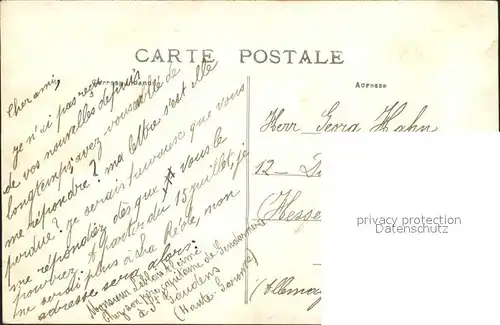 CARTE POSTALE
Correspondance
Adresse
Cher ami,
je n'ai pas reçu
de vos nouvelles depuis
longtemps; avez vous oublié de
me répondre? ma lettre s'est elle
perdue? je serais heureux que vous
me répondiez dès que vous le
pourrez. A partir du 15 juillet, je
ne serai plus à La Réole, mon
adresse sera alors:
Monsieur
chez son père capitaine de Gendarmerie
à St Gaudens
(Haute-Garonne)
Herr Gerra Hahn
12-
(Hesse
(Allemag
privacy protection
repaired on www.oldthing.com